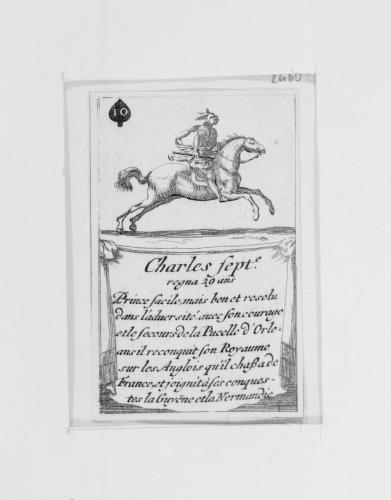 2460
10
Charles sept.e
regna 29 ans
Prince facile, mais bon et resolu
dans l'aduersité auec son courage
et le secours de la Pucelle. d'Orle-
ans il reconquit son Royaume
sur les Anglois qu'il chassa de
France, et joignit à ses conques-
tes la Guyëne et la Normandie